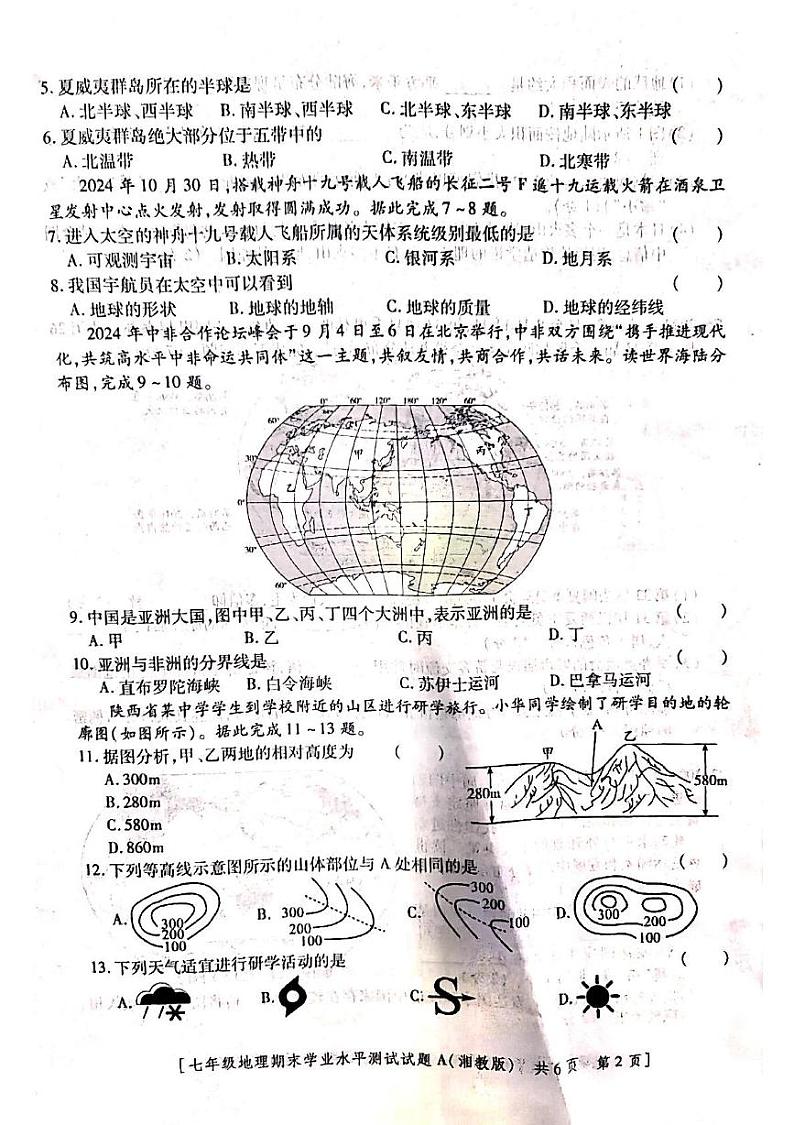 5. 夏威夷群岛所在的半球是 ( )
A. 北半球、西半球 B. 南半球、西半球 C. 北半球、东半球 D. 南半球、东半球
6. 夏威夷群岛绝大部分位于五带中的 ( )
A. 北温带 B. 热带 C. 南温带 D. 北寒带
2024年10月30日,搭载神舟十九号载人飞船的长征二号F遥十九运载火箭在酒泉卫
星发射中心点火发射,发射取得圆满成功。据此完成7~8题。
7. 进入太空的神舟十九号载人飞船所属的天体系统级别最低的是 ( )
A. 可观测宇宙 B. 太阳系 C. 银河系 D. 地月系
8. 我国宇航员在太空中可以看到 ( )
A. 地球的形状 B. 地球的地轴 C. 地球的质量 D. 地球的经纬线
2024年中非合作论坛峰会于9月4日至6日在北京举行,中非双方围绕“携手推进现代
化,共筑高水平中非命运共同体”这一主题,共叙友情,共商合作,共话未来。读世界海陆分
布图,完成9~10题。
0° 60° 120° 180° 120° 60°
60° 60°
30° 30°
0° 0°
30° 30°
60° 60°
甲 乙 丙 丁
9. 中国是亚洲大国,图中甲、乙、丙、丁四个大洲中,表示亚洲的是 ( )
A. 甲 B. 乙 C. 丙 D. 丁
10. 亚洲与非洲的分界线是 ( )
A. 直布罗陀海峡 B. 白令海峡 C. 苏伊士运河 D. 巴拿马运河
陕西省某中学学生到学校附近的山区进行研学旅行。小华同学绘制了研学目的地的轮
廓图(如图所示)。据此完成11~13题。
11. 据图分析,甲、乙两地的相对高度为 ( )
A. 300m
B. 280m
C. 580m
D. 860m
A
甲 乙
280m 580m
12. 下列等高线示意图所示的山体部位与A处相同的是 ( )
A. 300 200 100
B. 300 200 100
C. 300 200 100
D. 300 200 100
13. 下列天气适宜进行研学活动的是 ( )
A. B. C. D.
[七年级地理期末学业水平测试试题A(湘教版) 共6页 第2页]